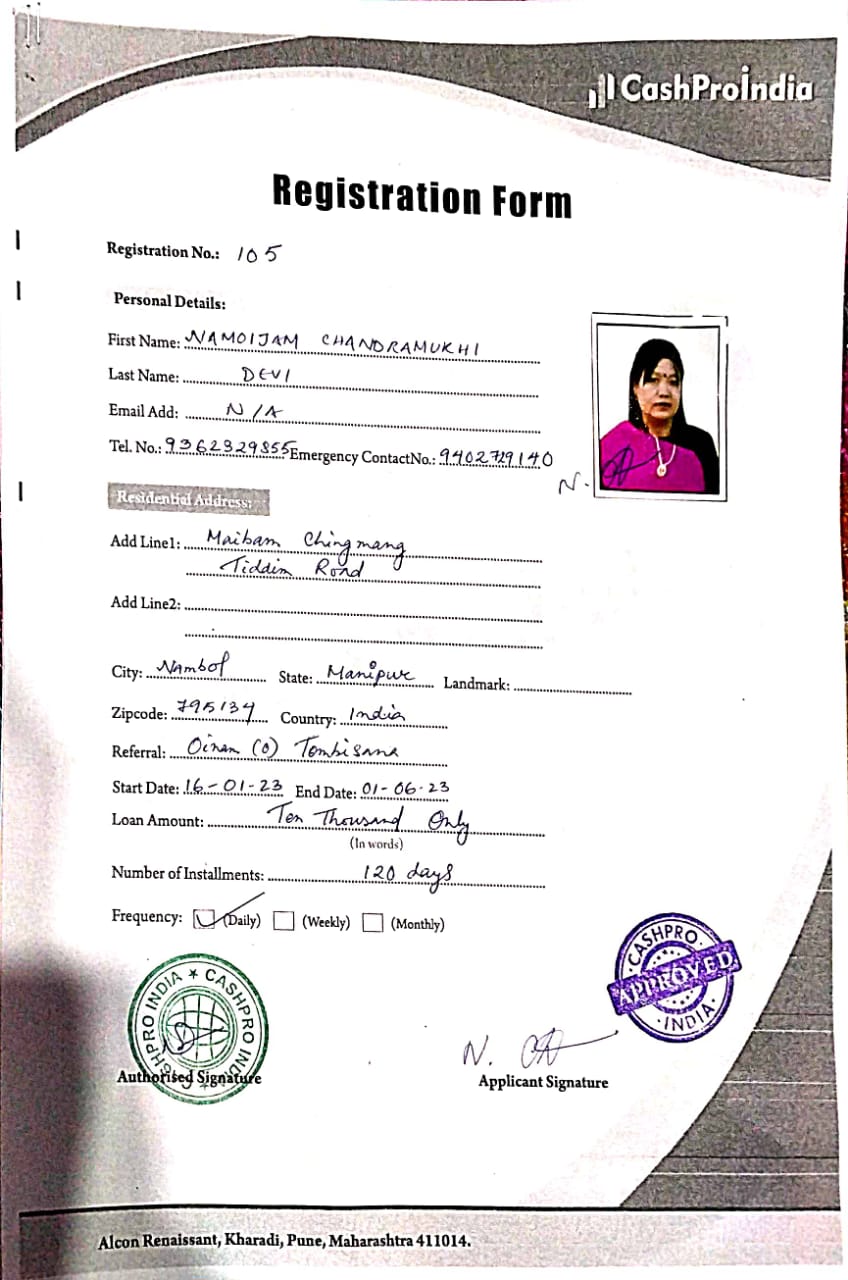 CashProIndia
Registration Form
Registration No.: 105
Personal Details:
First Name: NAMOIJAM CHANDRAMUKHI
Last Name: DEVI
Email Add: N/A
Tel. No.: 9362329855 Emergency ContactNo.: 9402729140
N.
Residential Address:
Add Line1: Maibam Chingmang
Tiddim Road
Add Line2:
City: Nambol State: Manipur Landmark:
Zipcode: 795134 Country: India
Referral: Oinam (O) Tombisana
Start Date: 16-01-23 End Date: 01-06-23
Loan Amount: Ten Thousand Only
(In words)
Number of Installments: 120 days
Frequency: (Daily) (Weekly) (Monthly)
CASHPRO INDIA ★ CASHPRO INDIA
CASHPRO
APPROVED
INDIA
N.
Authorised Signature
Applicant Signature
Alcon Renaissant, Kharadi, Pune, Maharashtra 411014.